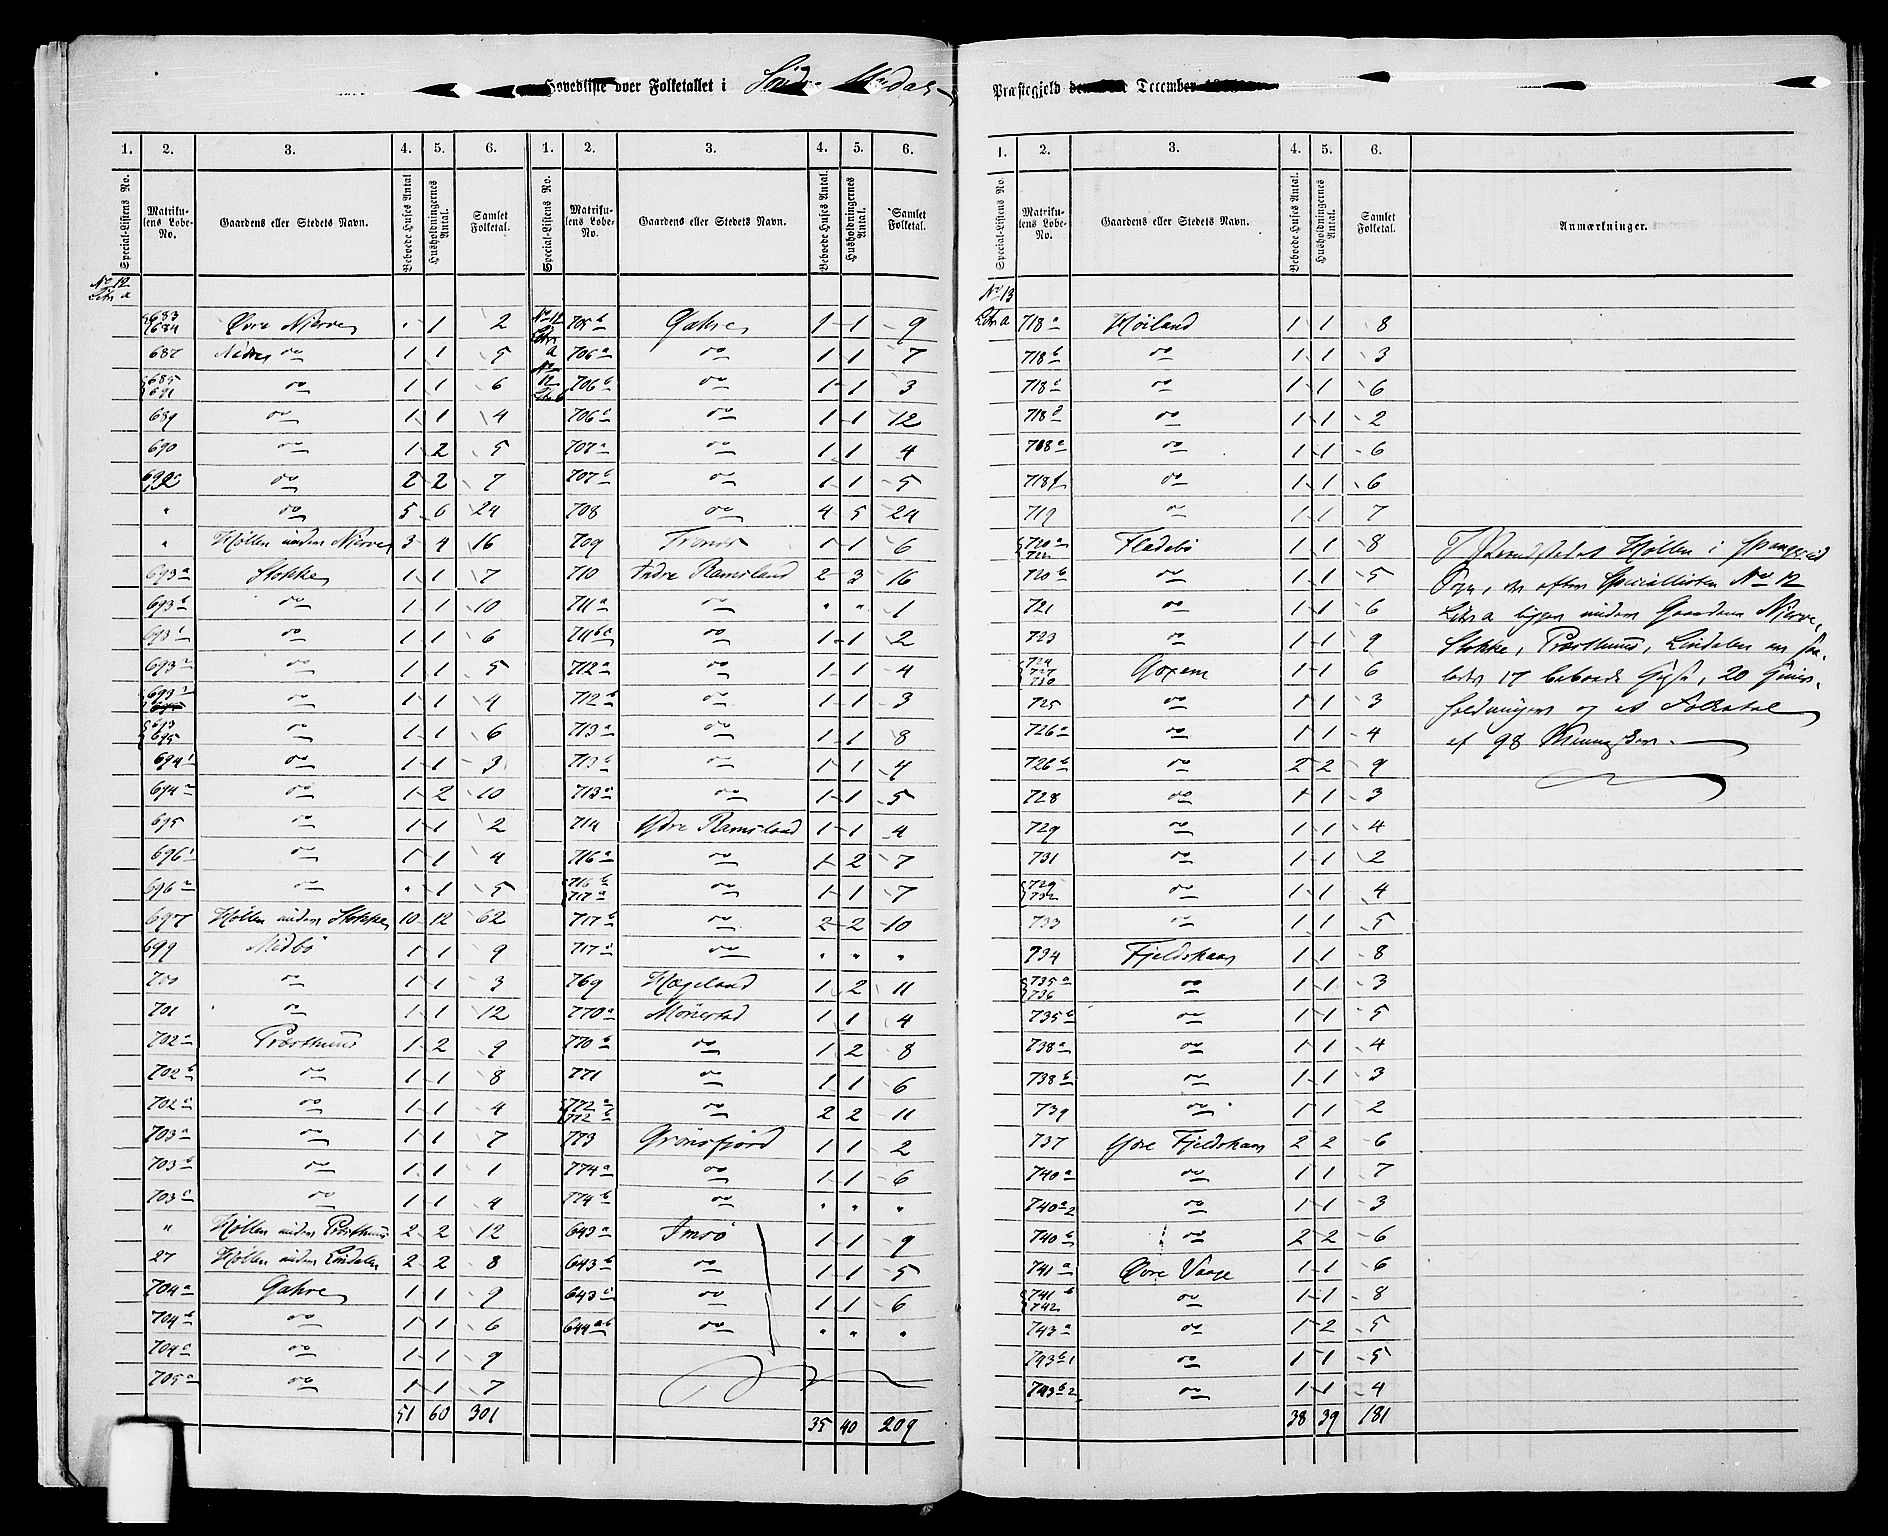 Hovedliste over Folketallet i Søndre Undal
Præstegjeld den December
1. 2. 3. 4. 5. 6.
Special-Listens No. Matrikulens Løbe-No. Gaardens eller Stedets Navn. Beboede Huses Antal. Husholdningernes Antal. Samlet Folketal.
No 12
Litr a
683 684 Øvre Njerve " 1 2
687 Nedre do 1 1 5
685 691 do 1 1 6
689 do 1 1 4
690 do 1 2 5
692 do 2 2 7
" do 5 6 24
" Høllen under Njerve 3 4 16
693 a Stokke 1 1 7
693 b do 1 1 10
693 do 1 1 6
693 do 1 1 5
693 do 1 1 4
695 do 1 1 6
694 do 1 1 3
694 do 1 2 10
695 do 1 1 2
696 do 1 1 4
696 do " 1 5
697 Høllen under Stokke 10 12 62
699 Midbø 1 1 9
700 do 1 1 3
701 do 1 1 12
702 a Præsthuus 1 2 9
702 b do 1 1 8
702 c do 1 1 4
703 a do 1 1 7
703 b do 1 1 1
703 c do 1 1 4
" Høllen under Præsthuus 2 2 12
27 Høllen under Lindalen 2 2 8
704 a Gahre 1 1 9
704 b do 1 1 6
704 c do 1 1 9
705 a do 1 1 7
51 60 301
1. 2. 3. 4. 5. 6.
Special-Listens No. Matrikulens Løbe-No. Gaardens eller Stedets Navn. Beboede Huses Antal. Husholdningernes Antal. Samlet Folketal.
No 12 Litr a 705 b Gahre 1 1 9
706 a do 1 1 7
No 12 Litr b 706 b do 1 1 3
706 c do 1 1 12
707 a do 1 1 4
707 b do 1 1 5
708 do 4 5 24
709 1 1 6
710 Indre Ramsland 2 3 16
711 a do " " 1
711 b a do 1 1 2
712 a do 1 1 4
712 b do 1 1 3
713 a do 1 1 8
713 b do 1 1 4
713 do 1 1 5
714 Ydre Ramsland 1 1 4
716 a do 1 2 7
716 b 717 a do 1 1 7
717 b do 2 2 10
717 c do " " "
769 Hageland 1 2 11
770 a Mønestad 1 1 4
770 b do 1 2 8
771 do 1 1 6
772 a 772 b do 2 2 11
773 Grønsfjord 1 1 2
774 a do 1 1 6
774 b do " " "
643 a Imsø 1 1 9
643 b do 1 1 5
643 c do 1 1 6
644 ab do " " "
35 40 209
1. 2. 3. 4. 5. 6.
Special-Listens No. Matrikulens Løbe-No. Gaardens eller Stedets Navn. Beboede Huses Antal. Husholdningernes Antal. Samlet Folketal. Anmærkninger.
No 13
Litr a 718 a Høiland 1 1 8
718 b do 1 1 3
718 c do 1 1 6
718 d do 1 1 2
718 e do 1 1 6
718 f do 1 1 6
719 do 1 1 7
720 a 722 Fladebø 1 1 8
720 b do 1 1 5
721 do 1 1 6
723 do 1 1 9
724 727 730 Goxem 1 1 6
725 do 1 1 3
726 a do 1 1 4
726 b do 2 2 9
728 do 1 1 3
729 do 1 1 4
731 do 1 1 2
729 732 do 1 1 4
733 do 1 1 5
734 Fjeldskaar 1 1 8
735 a 736 do 1 1 3
735 b do 1 1 5
738 a do 1 1 4
738 b do 1 1 3
739 do 1 1 2
737 Ydre Fjeldskaar 2 2 6
740 a do 1 1 7
740 a 2 do 1 1 3
740 b do 2 2 6
741 a Øvre Vaage 1 1 6
741 b 742 do 1 1 8
743 a do 1 2 5
743 b 1 do 1 1 5
743 b 2 do 1 1 4
38 39 181
I Strandstedet Høllen i Spangereid
Sogn, der efter Speciallisten No 12
Litr a ligger under Gaardene Njerve,
Stokke, Præsthuus, Lindalen er saa-
ledes 17 beboede Huse, 20 Huus-
holdninger og et Folketal
af 98 Mennesker.